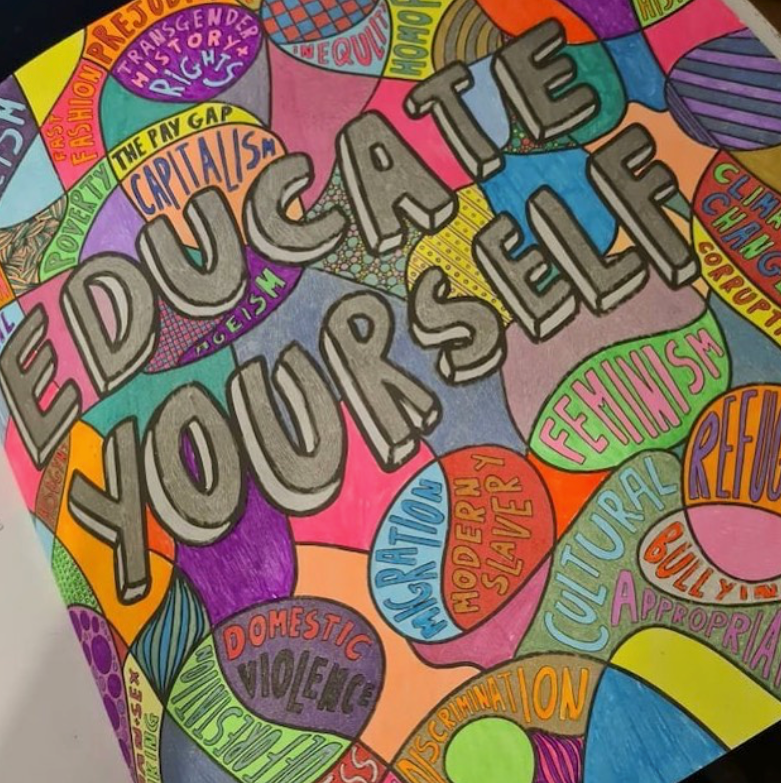 PREJUD
TRANSGENDER
HISTORY+
RIGHTS
INEQULIT
HOMOP
HIS
FAST
FASHION
THE PAY GAP
CAPITALISM
POVERTY
EDUCATE
YOURSELF
AGEISM
CLIM
CHANG
CORRUPT
FEMINISM
REFU
MIGRATION
MODERN
SLAVERY
CULTURAL
APPROPRIA
BULLYIN
DOMESTIC
VIOLENCE
DISCRIMINATION